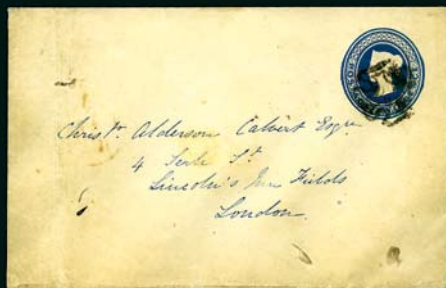 Christr. Alderson Calvert Esqre
4 Serle St
Lincoln's Inn Fields
London.